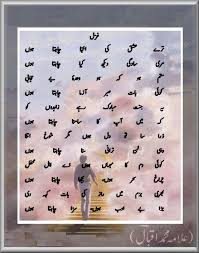 غزل
ترے عشق کی انتہا چاہتا ہوں
مری سادگی دیکھ کیا چاہتا ہوں
ستم ہو کہ ہو وعدہ بے حجابی
کوئی بات صبر آزما چاہتا ہوں
یہ جنت مبارک رہے زاہدوں کو
کہ میں آپ کا سامنا چاہتا ہوں
ذرا سا تو دل ہوں مگر شوخ اتنا
وہی لن ترانی سنا چاہتا ہوں
کوئی دم کا مہماں ہوں اے اہل محفل
چراغ سحر ہوں بجھا چاہتا ہوں
بھری بزم میں راز کی بات کہہ دی
بڑا بے ادب ہوں سزا چاہتا ہوں
(علامہ محمد اقبال)